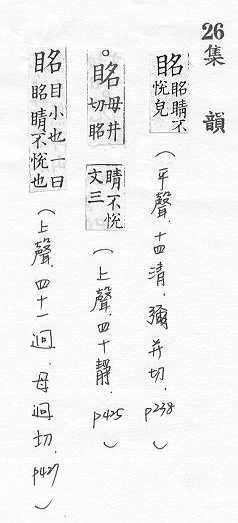 26
集韻
眳眳睛不悅皃(平聲.十四清.彌并切.p238)
眳母井切眳睛不悅文三(上聲.四十靜.p425)
眳目小也一曰眳睛不悅也(上聲.四十一迥.母迥切.p427)